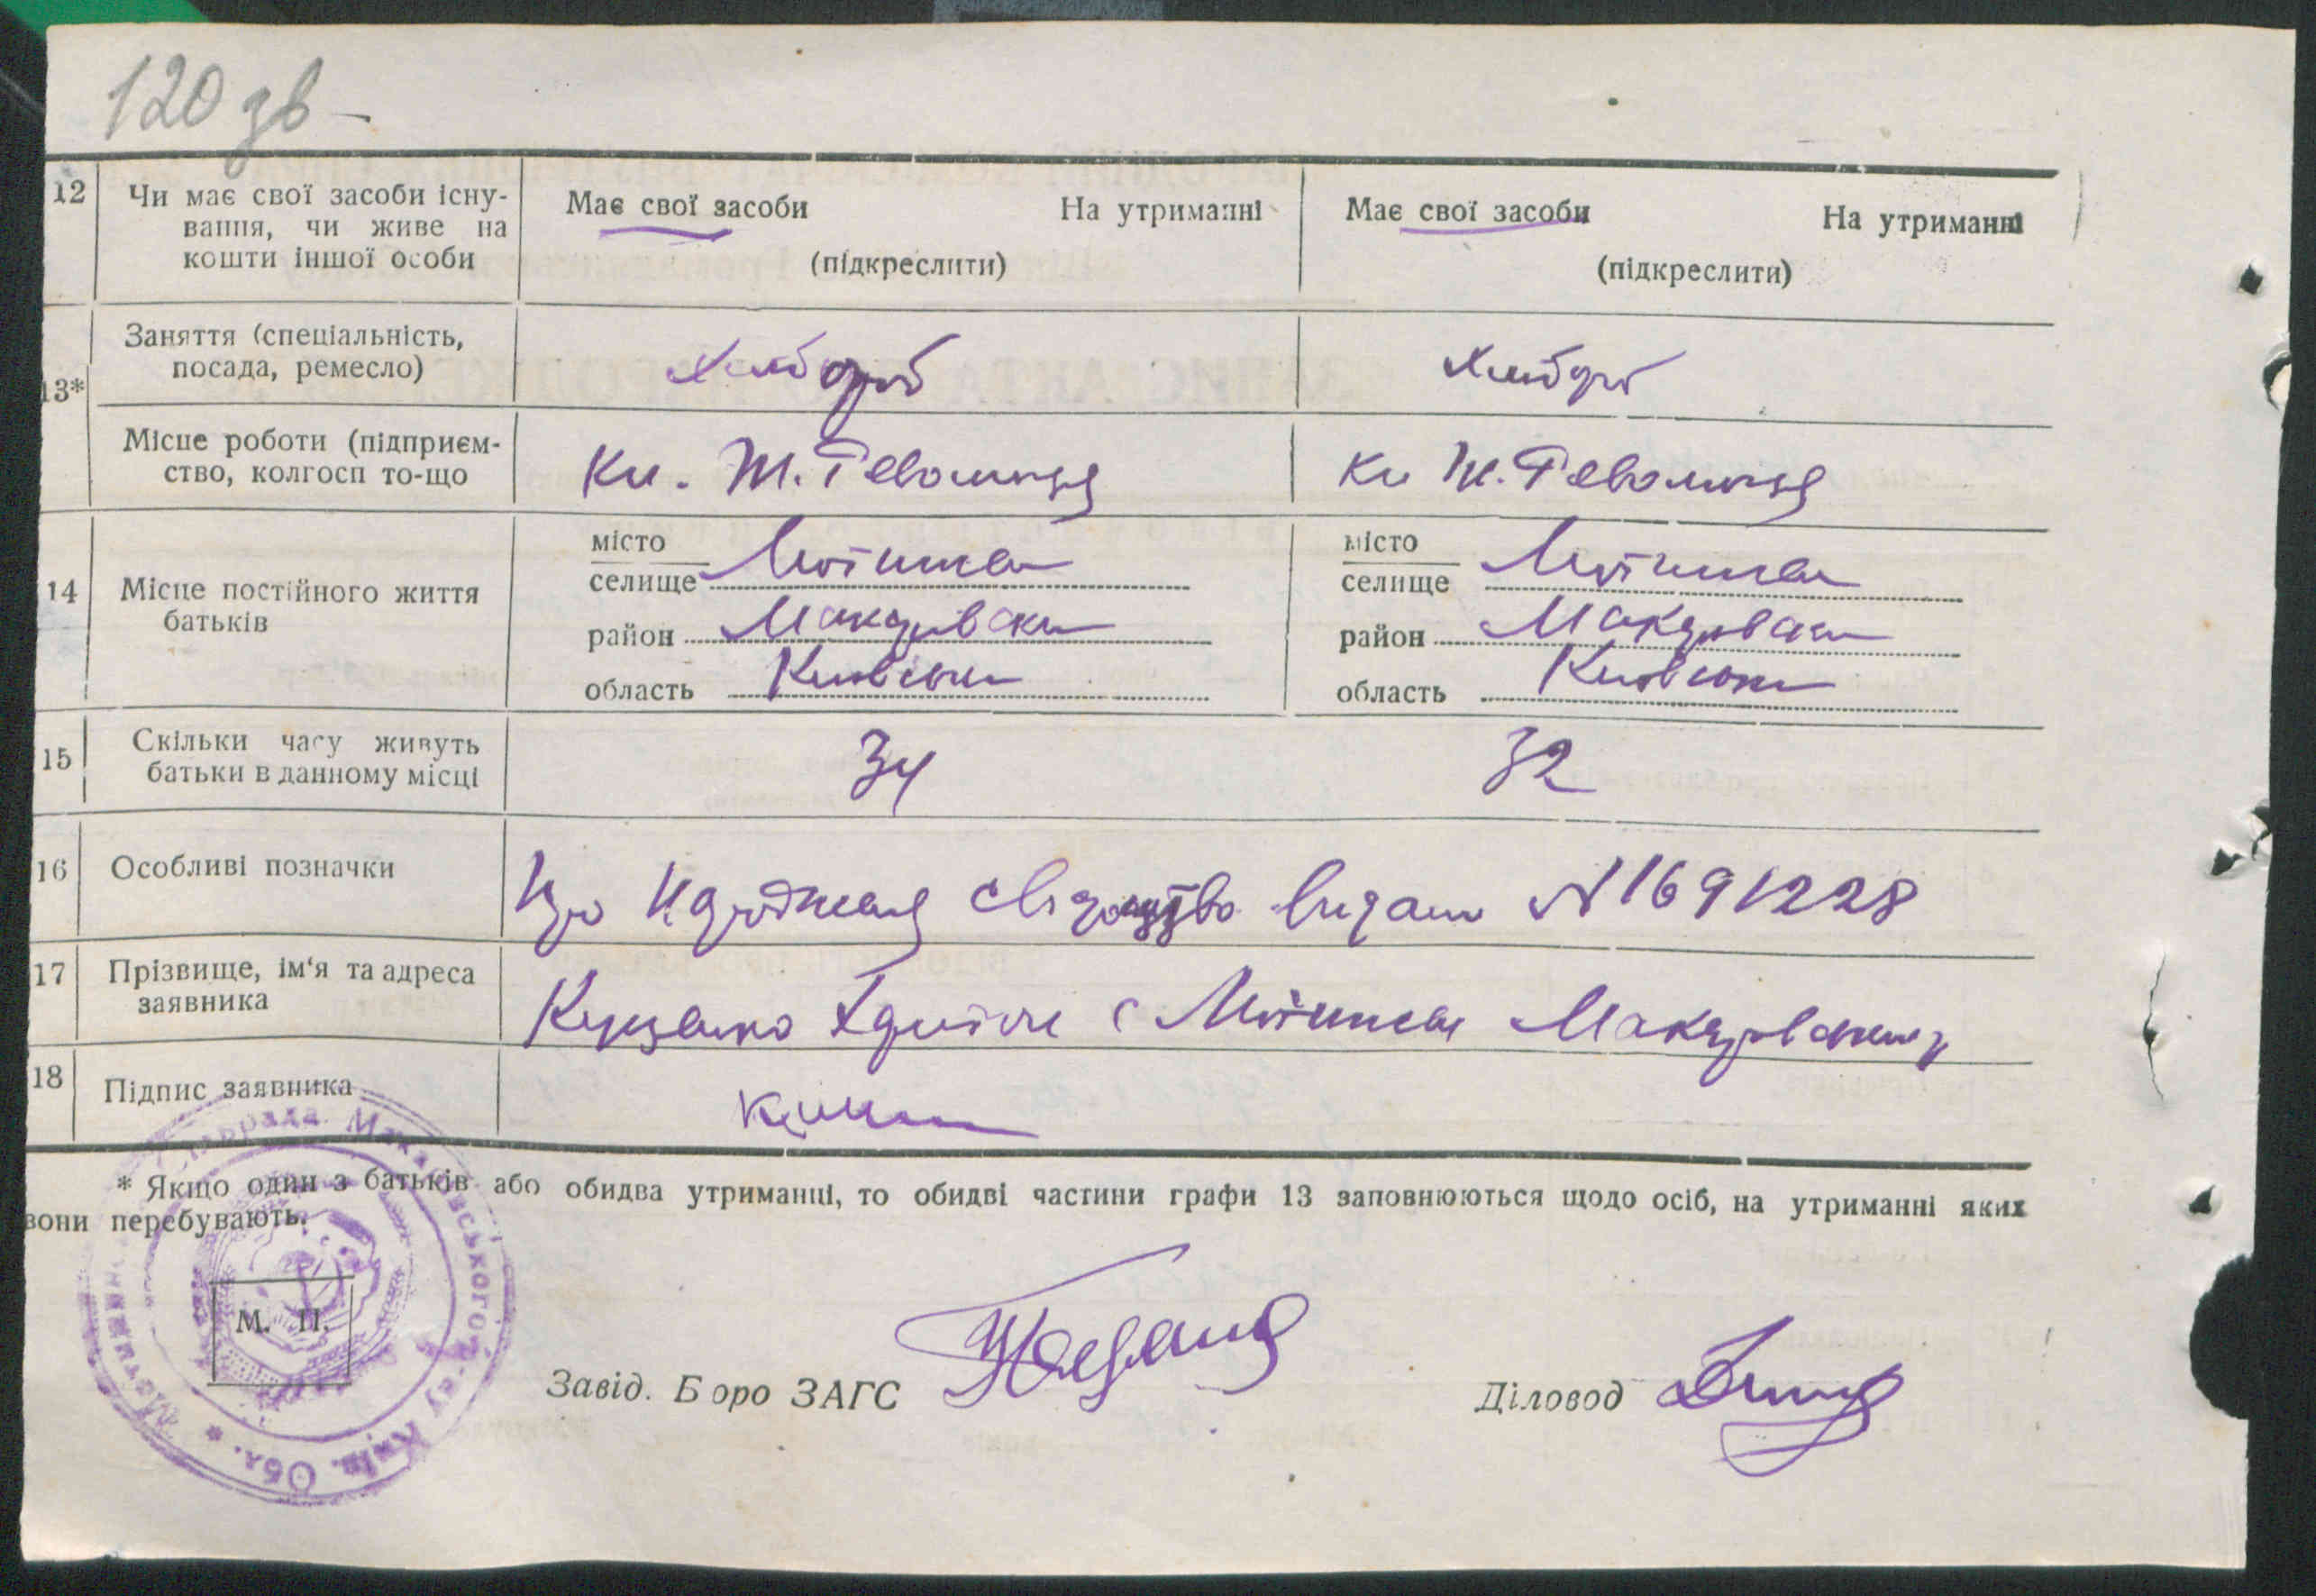 120 зв
12 Чи має свої засоби існу- Має свої засоби На утриманні Має свої засоби На утриманні
вання, чи живе на
кошти іншої особи (підкреслити) (підкреслити)
Заняття (спеціальність,
посада, ремесло) Хлібороб Хлібороб
13*
Місце роботи (підприєм-
ство, колгосп то-що Революція Революція
місто місто
селище Мотижин селище Мотижин
14 Місце постійного життя
батьків район Макарівськ район Макарівськ
область Київськ область Київськ
15 Скільки часу живуть
батьки в данному місці 34 32
16 Особливі позначки Про народження свідоцтво видано N 1691228
17 Прізвище, ім'я та адреса
заявника Куценко с Мотижин Макарівськ
18 Підпис заявника
* Якщо один з батьків або обидва утриманці, то обидві частини графи 13 заповнюються щодо осіб, на утриманні яких
вони перебувають.
Сільрада Макарівського р-ну Київ. Обл. * Мотижин
М. П.
Завід. Бюро ЗАГС
Діловод